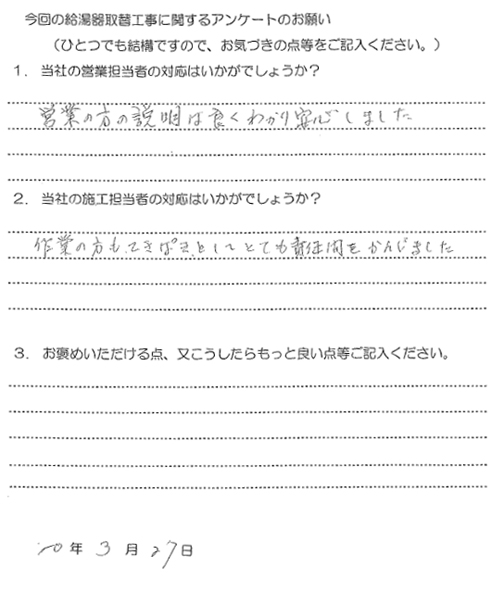 今回の給湯器取替工事に関するアンケートのお願い
（ひとつでも結構ですので、お気づきの点等をご記入ください。）
1. 当社の営業担当者の対応はいかがでしょうか？
営業の方の説明は良くわかり安心しました
2. 当社の施工担当者の対応はいかがでしょうか？
作業の方も、てきぱきとしてとても責任間をかんじました
3. お褒めいただける点、又こうしたらもっと良い点等ご記入ください。
20年3月27日